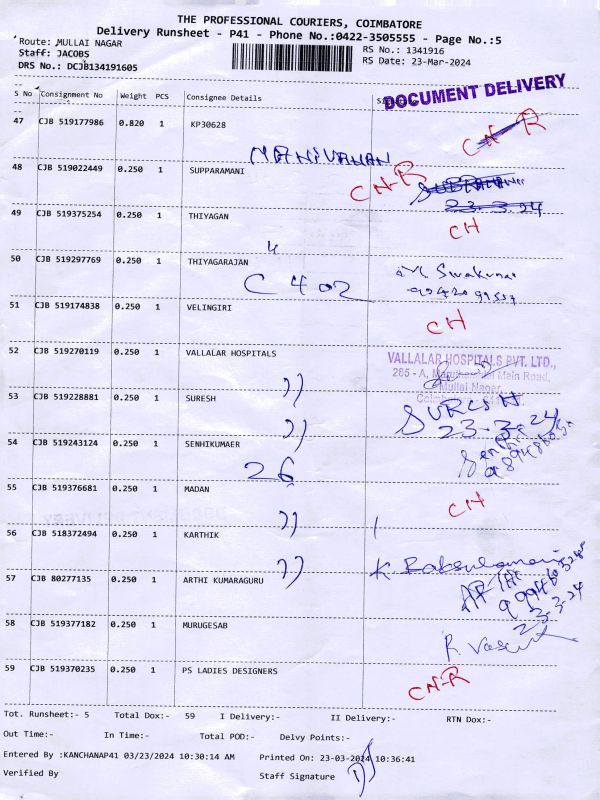 THE PROFESSIONAL COURIERS, COIMBATORE
Delivery Runsheet - P41 - Phone No.:0422-3505555 - Page No.:5
Route: MULLAI NAGAR RS No.: 1341916
Staff: JACOBS RS Date: 23-Mar-2024
DRS No.: DCJB134191605
DOCUMENT DELIVERY
S No Consignment No Weight PCS Consignee Details
47 CJB 519177986 0.820 1 KP30628 CN-R
MANIVANAN
48 CJB 519022449 0.250 1 SUPPARAMANI CN-R
23.3.24
49 CJB 519375254 0.250 1 THIYAGAN CH
50 CJB 519297769 0.250 1 THIYAGARAJAN
C 402
51 CJB 519174838 0.250 1 VELINGIRI CH
52 CJB 519270119 0.250 1 VALLALAR HOSPITALS
VALLALAR HOSPITALS PVT. LTD.,
285 - A, Main Road,
Mullai Nagar,
53 CJB 519228881 0.250 1 SURESH SURESH
23.3.24
54 CJB 519243124 0.250 1 SENHIKUMAER
26
55 CJB 519376681 0.250 1 MADAN CH
56 CJB 518372494 0.250 1 KARTHIK
57 CJB 80277135 0.250 1 ARTHI KUMARAGURU
23-3-24
58 CJB 519377182 0.250 1 MURUGESAB
59 CJB 519370235 0.250 1 PS LADIES DESIGNERS CN-R
Tot. Runsheet:- 5 Total Dox:- 59 I Delivery:- II Delivery:- RTN Dox:-
Out Time:- In Time:- Total POD:- Delvy Points:-
Entered By :KANCHANAP41 03/23/2024 10:30:14 AM Printed On: 23-03-2024 10:36:41
Verified By Staff Signature